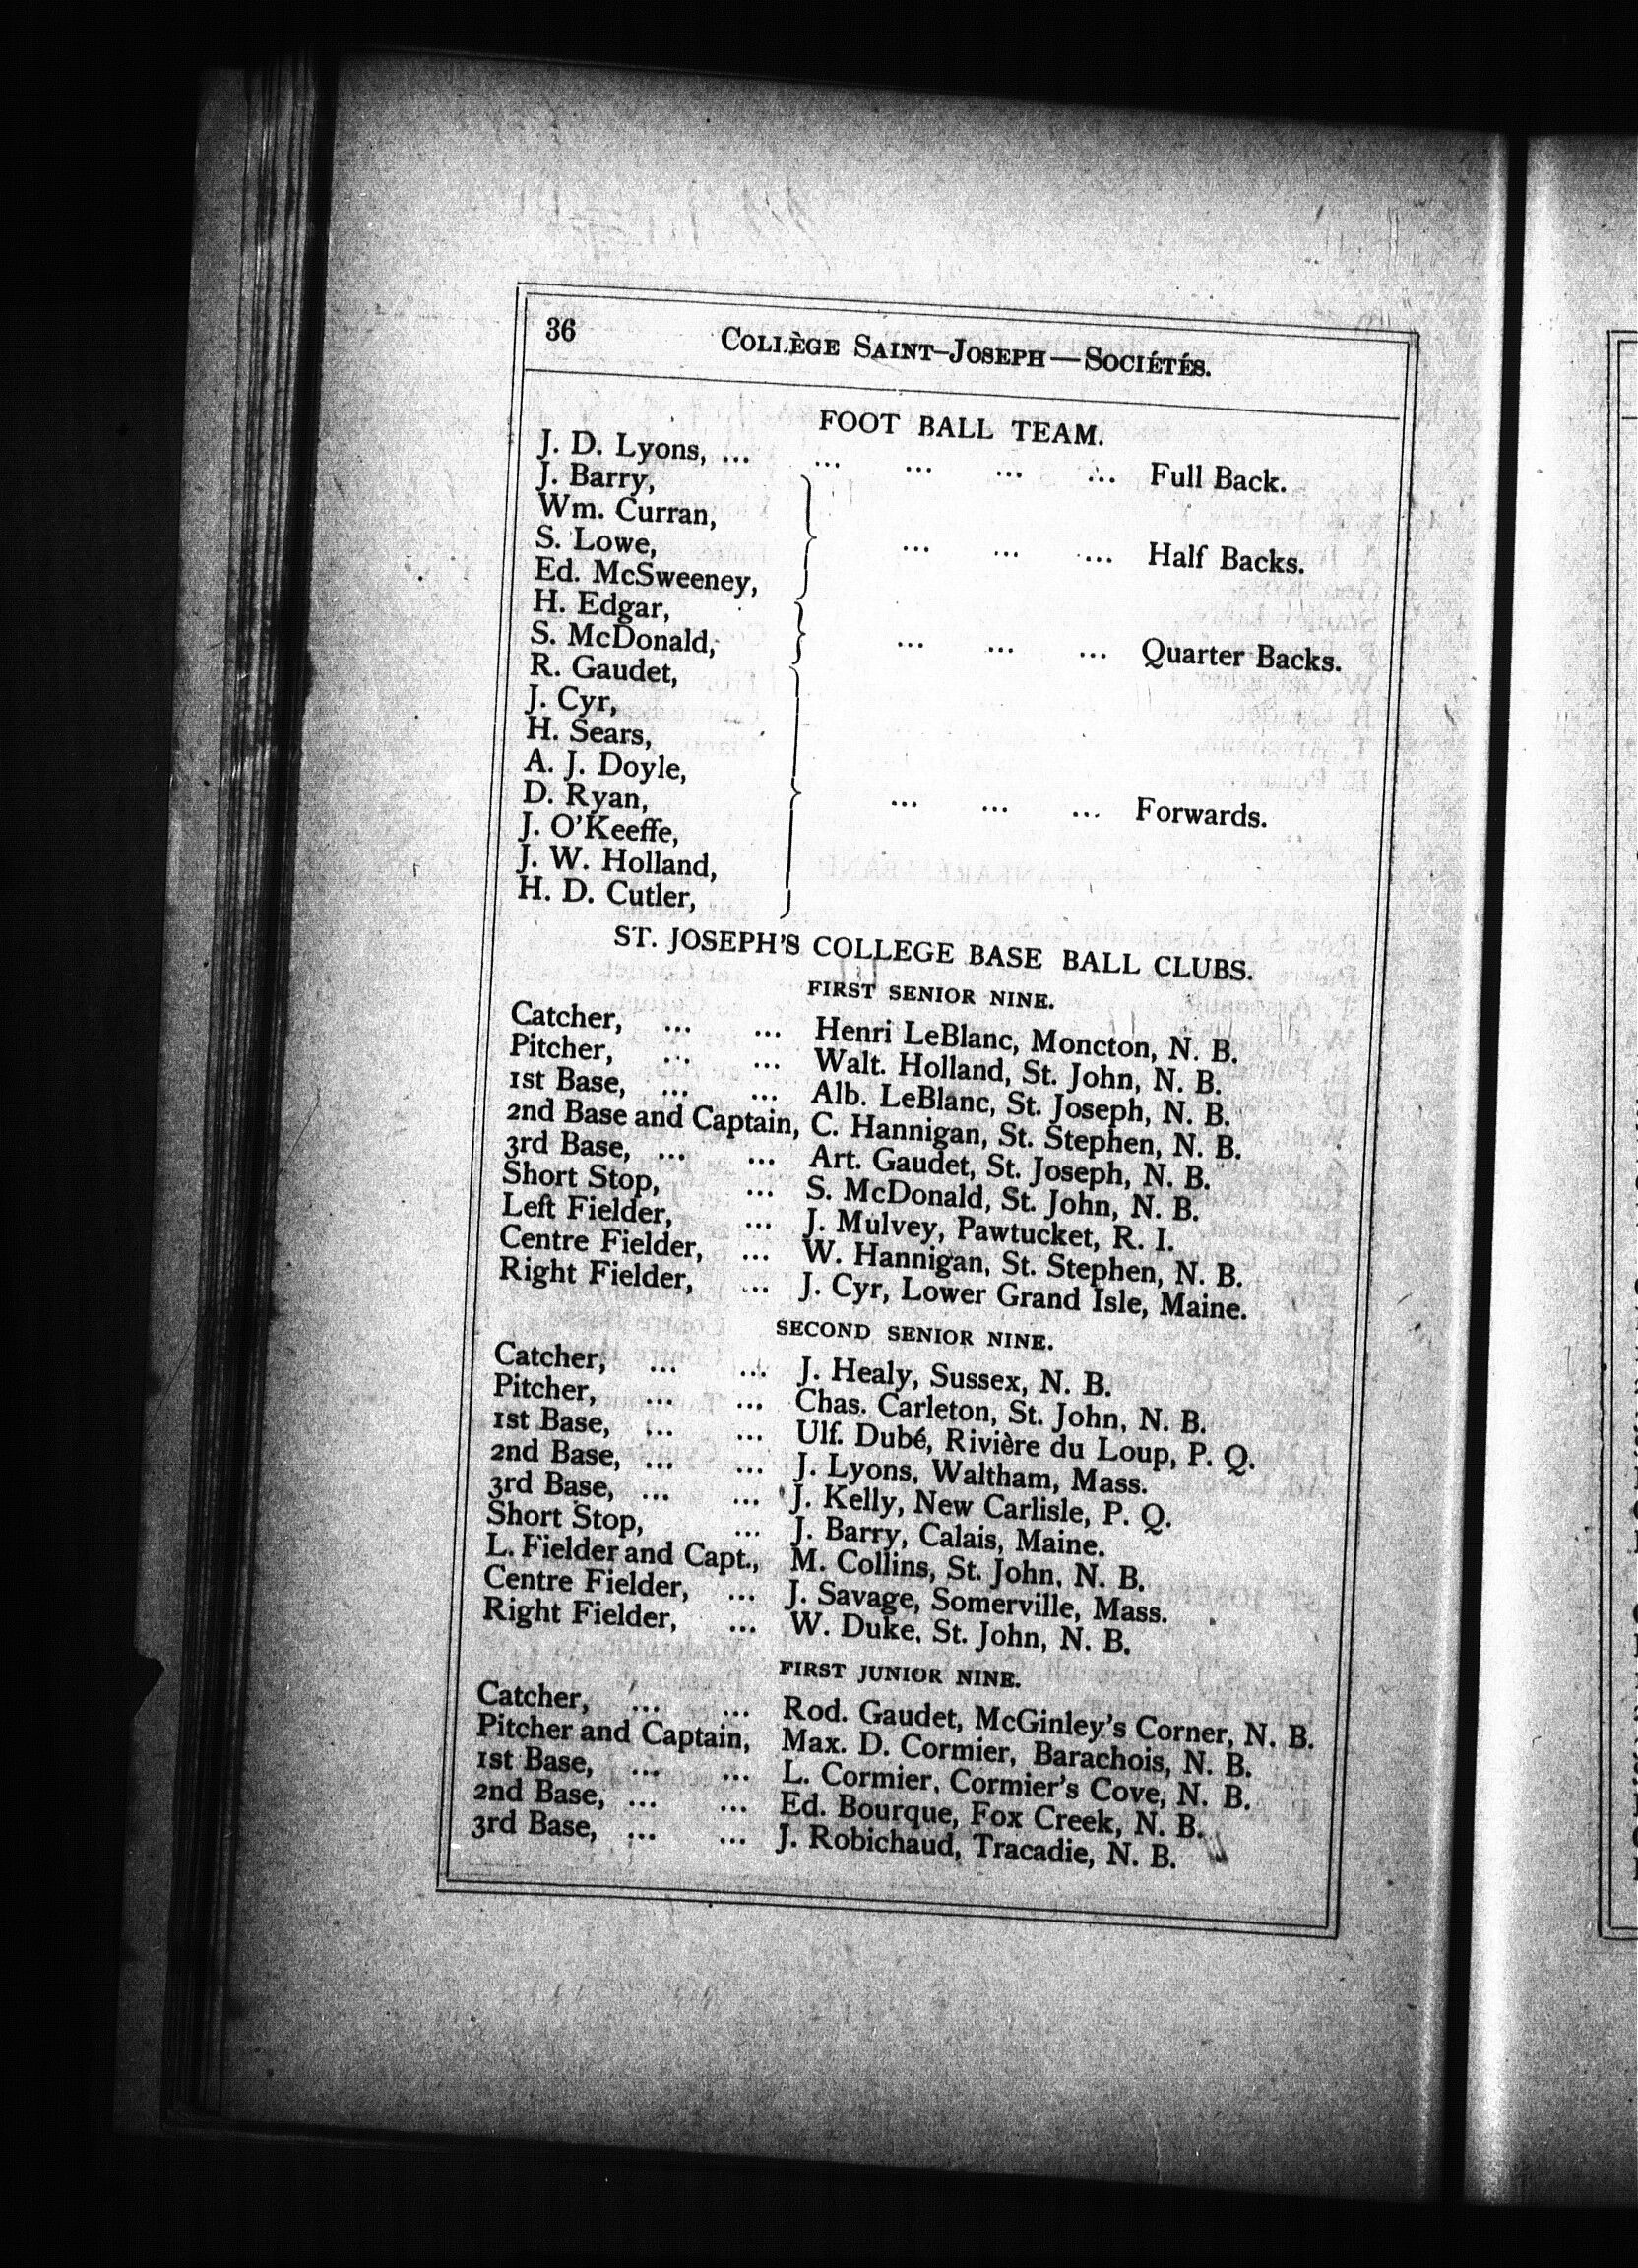 36 COLLÈGE SAINT-JOSEPH — SOCIÉTÉS.
FOOT BALL TEAM.
J. D. Lyons, ... ... ... ... ... Full Back.
J. Barry,
Wm. Curran,
S. Lowe, ... ... ... Half Backs.
Ed. McSweeney,
H. Edgar,
S. McDonald, ... ... ... Quarter Backs.
R. Gaudet,
J. Cyr,
H. Sears,
A. J. Doyle,
D. Ryan, ... ... ... Forwards.
J. O'Keeffe,
J. W. Holland,
H. D. Cutler,
ST. JOSEPH'S COLLEGE BASE BALL CLUBS.
FIRST SENIOR NINE.
Catcher, ... ... Henri LeBlanc, Moncton, N. B.
Pitcher, ... ... Walt. Holland, St. John, N. B.
1st Base, ... ... Alb. LeBlanc, St. Joseph, N. B.
2nd Base and Captain, C. Hannigan, St. Stephen, N. B.
3rd Base, ... ... Art. Gaudet, St. Joseph, N. B.
Short Stop, ... S. McDonald, St. John, N. B.
Left Fielder, ... J. Mulvey, Pawtucket, R. I.
Centre Fielder, ... W. Hannigan, St. Stephen, N. B.
Right Fielder, ... J. Cyr, Lower Grand Isle, Maine.
SECOND SENIOR NINE.
Catcher, ... ... J. Healy, Sussex, N. B.
Pitcher, ... ... Chas. Carleton, St. John, N. B.
1st Base, ... ... Ulf. Dubé, Rivière du Loup, P. Q.
2nd Base, ... ... J. Lyons, Waltham, Mass.
3rd Base, ... ... J. Kelly, New Carlisle, P. Q.
Short Stop, ... J. Barry, Calais, Maine.
L. Fielder and Capt., M. Collins, St. John, N. B.
Centre Fielder, ... J. Savage, Somerville, Mass.
Right Fielder, ... W. Duke, St. John, N. B.
FIRST JUNIOR NINE.
Catcher, ... ... Rod. Gaudet, McGinley's Corner, N. B.
Pitcher and Captain, Max. D. Cormier, Barachois, N. B.
1st Base, ... ... L. Cormier, Cormier's Cove, N. B.
2nd Base, ... ... Ed. Bourque, Fox Creek, N. B.
3rd Base, ... ... J. Robichaud, Tracadie, N. B.